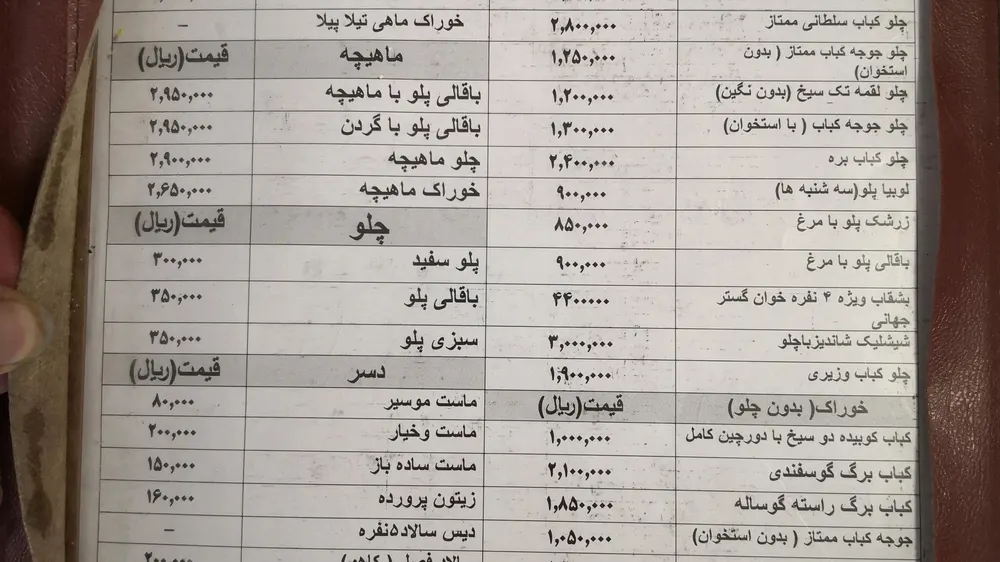 چلو کباب سلطانی ممتاز ۲,۸۰۰,۰۰۰
چلو جوجه کباب ممتاز ( بدون استخوان) ۱,۲۵۰,۰۰۰
چلو لقمه تک سیخ (بدون نگین) ۱,۲۰۰,۰۰۰
چلو جوجه کباب ( با استخوان) ۱,۳۰۰,۰۰۰
چلو کباب بره ۲,۴۰۰,۰۰۰
لوبیا پلو(سه شنبه ها) ۹۰۰,۰۰۰
زرشک پلو با مرغ ۸۵۰,۰۰۰
باقالی پلو با مرغ ۹۰۰,۰۰۰
بشقاب ویژه ۴ نفره خوان گستر جهانی ۴۴۰۰۰۰۰
شیشلیک شاندیزباچلو ۳,۰۰۰,۰۰۰
چلو کباب وزیری ۱,۹۰۰,۰۰۰
خوراک( بدون چلو) قیمت(ریال)
کباب کوبیده دو سیخ با دورچین کامل ۱,۰۰۰,۰۰۰
کباب برگ گوسفندی ۲,۱۰۰,۰۰۰
کباب برگ راسته گوساله ۱,۸۵۰,۰۰۰
جوجه کباب ممتاز ( بدون استخوان) ۱,۰۵۰,۰۰۰
خوراک ماهی تیلا پیلا –
ماهیچه قیمت(ریال)
باقالی پلو با ماهیچه ۲,۹۵۰,۰۰۰
باقالی پلو با گردن ۲,۹۵۰,۰۰۰
چلو ماهیچه ۲,۹۰۰,۰۰۰
خوراک ماهیچه ۲,۶۵۰,۰۰۰
چلو قیمت(ریال)
پلو سفید ۳۰۰,۰۰۰
باقالی پلو ۳۵۰,۰۰۰
سبزی پلو ۳۵۰,۰۰۰
دسر قیمت(ریال)
ماست موسیر ۸۰,۰۰۰
ماست وخیار ۲۰۰,۰۰۰
ماست ساده باز ۱۵۰,۰۰۰
زیتون پرورده ۱۶۰,۰۰۰
دیس سالاد۵نفره –